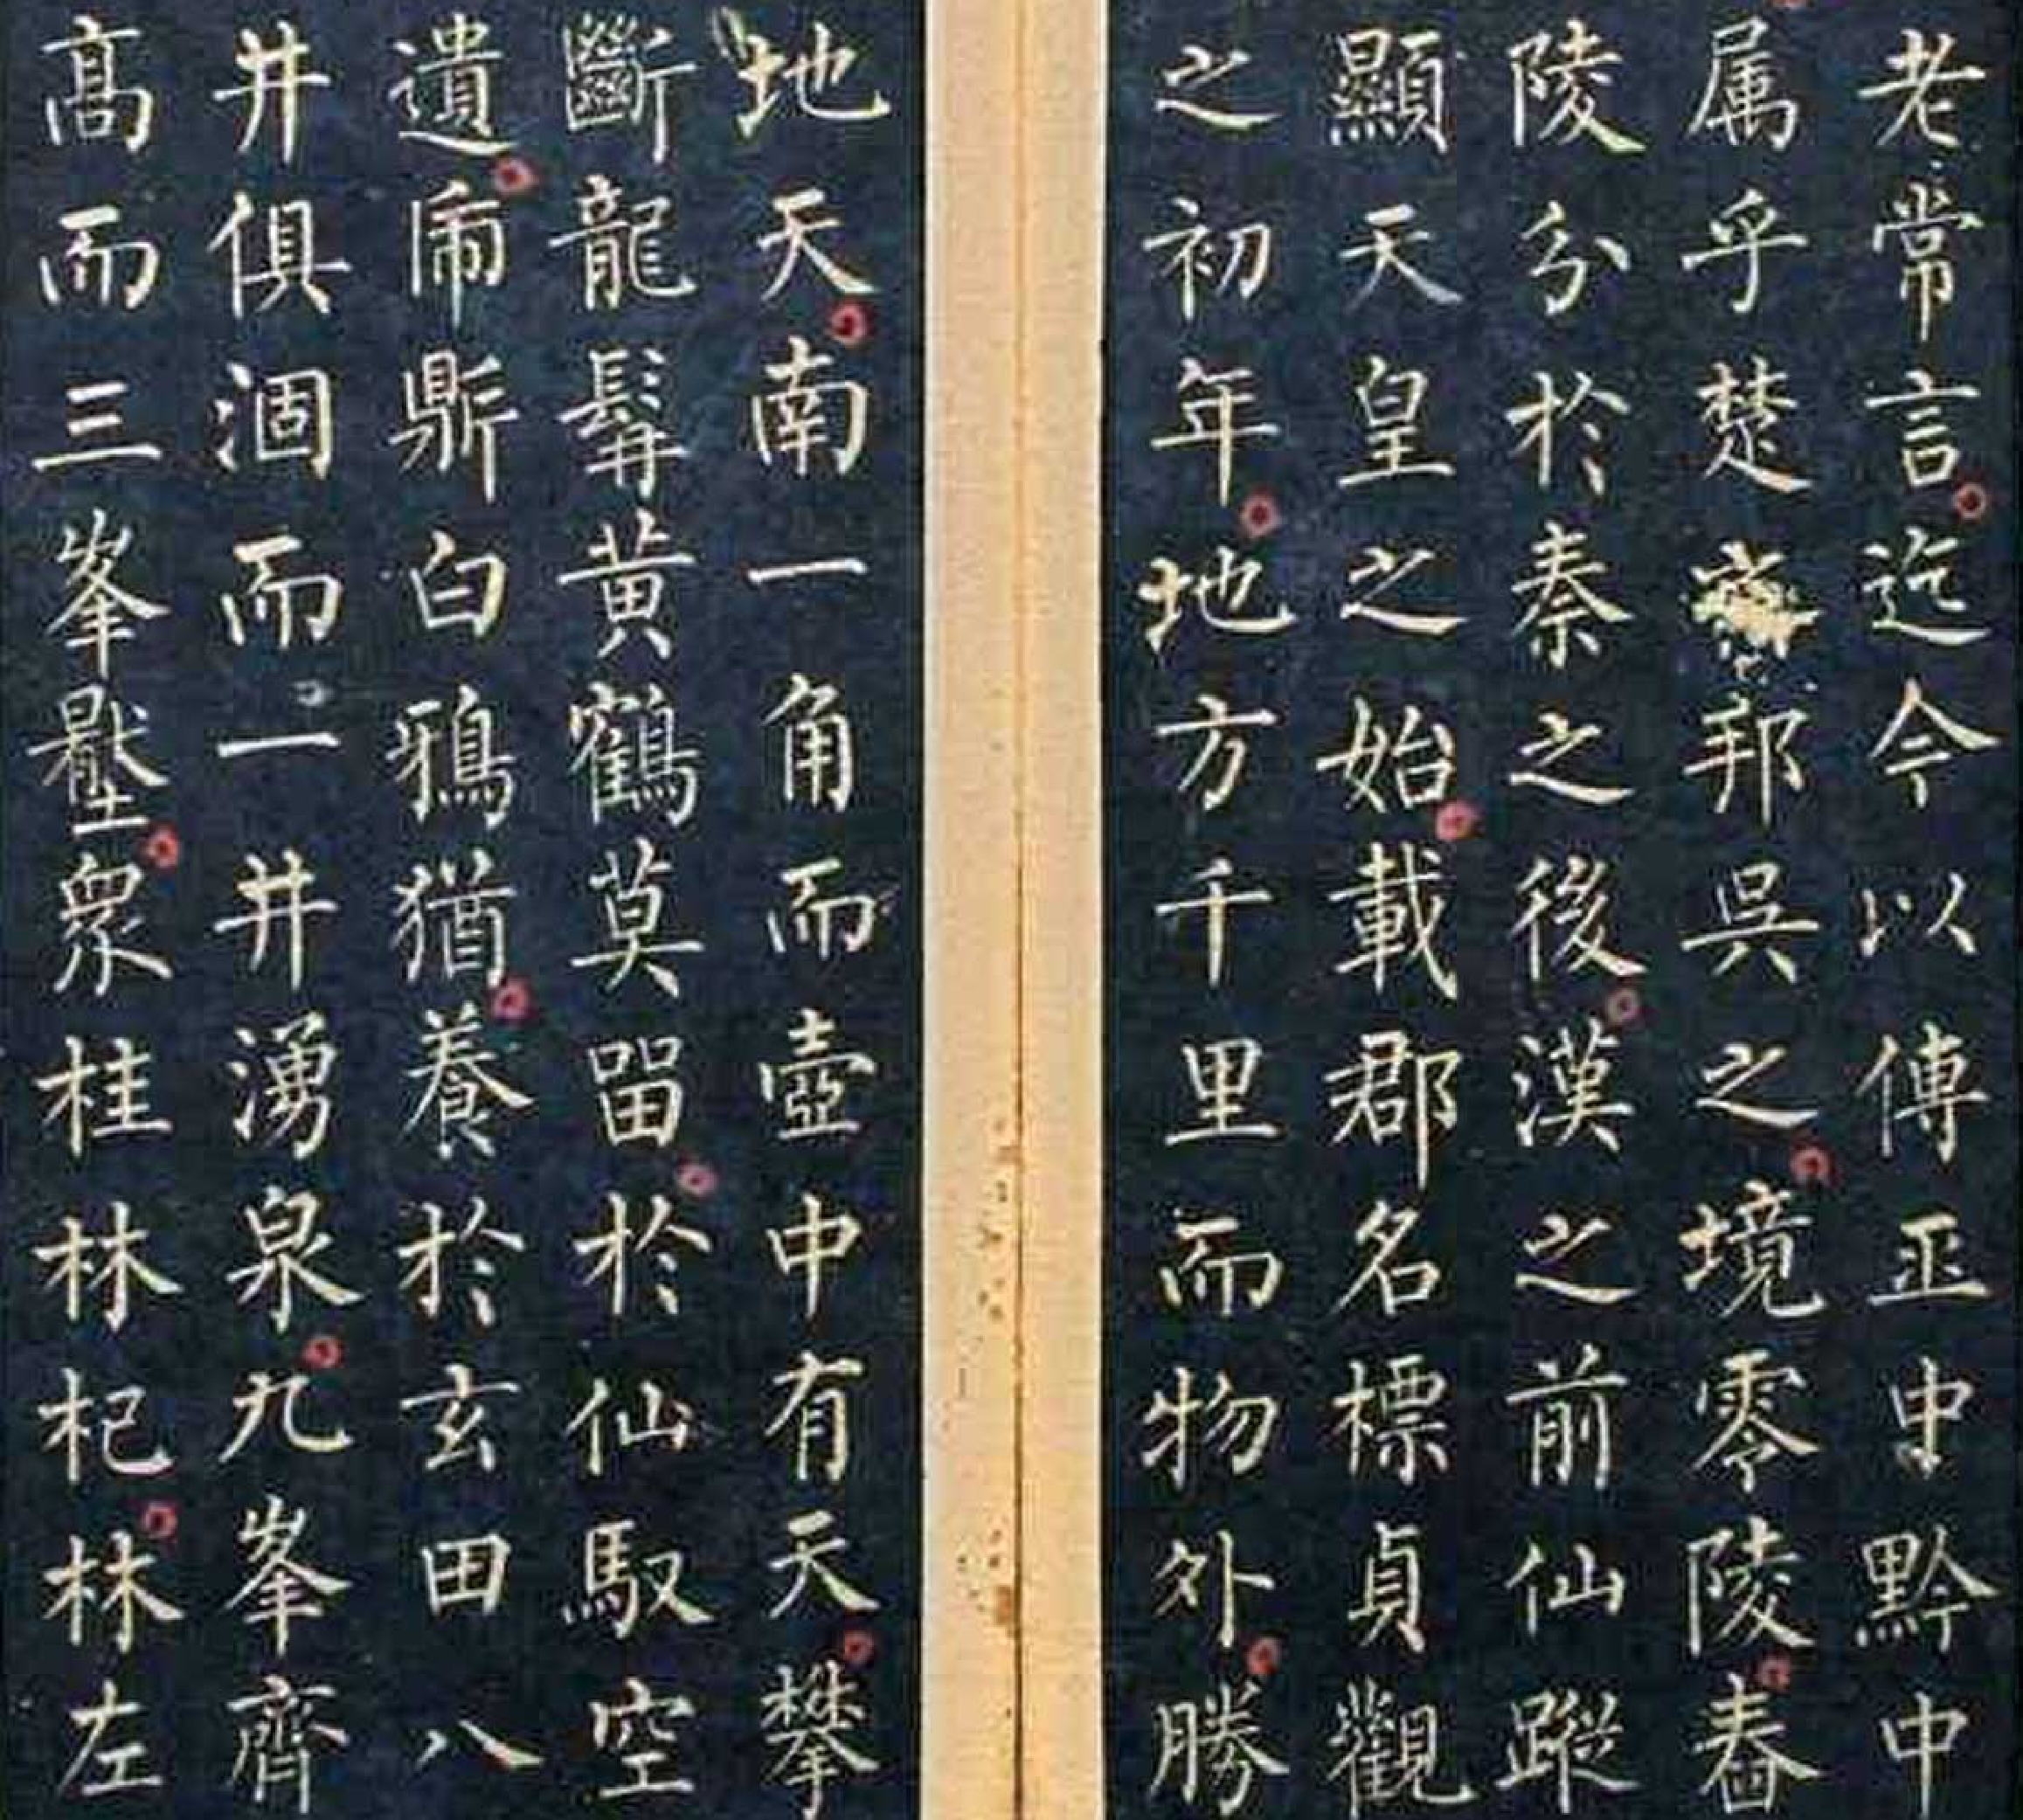 老常言迄今以傳正中黔中
属乎楚邦吳之境零陵舂
陵分於秦之後漢之前仙蹤
顯天皇之始載郡名標貞觀
之初年地方千里而物外勝
地天南一角而壺中有天攀
斷龍髯黃鶴莫留於仙馭空
遺鼎白鴉猶養於玄田八
井俱涸而一井湧泉九峯齊
髙而三峯壓衆桂林杞林左